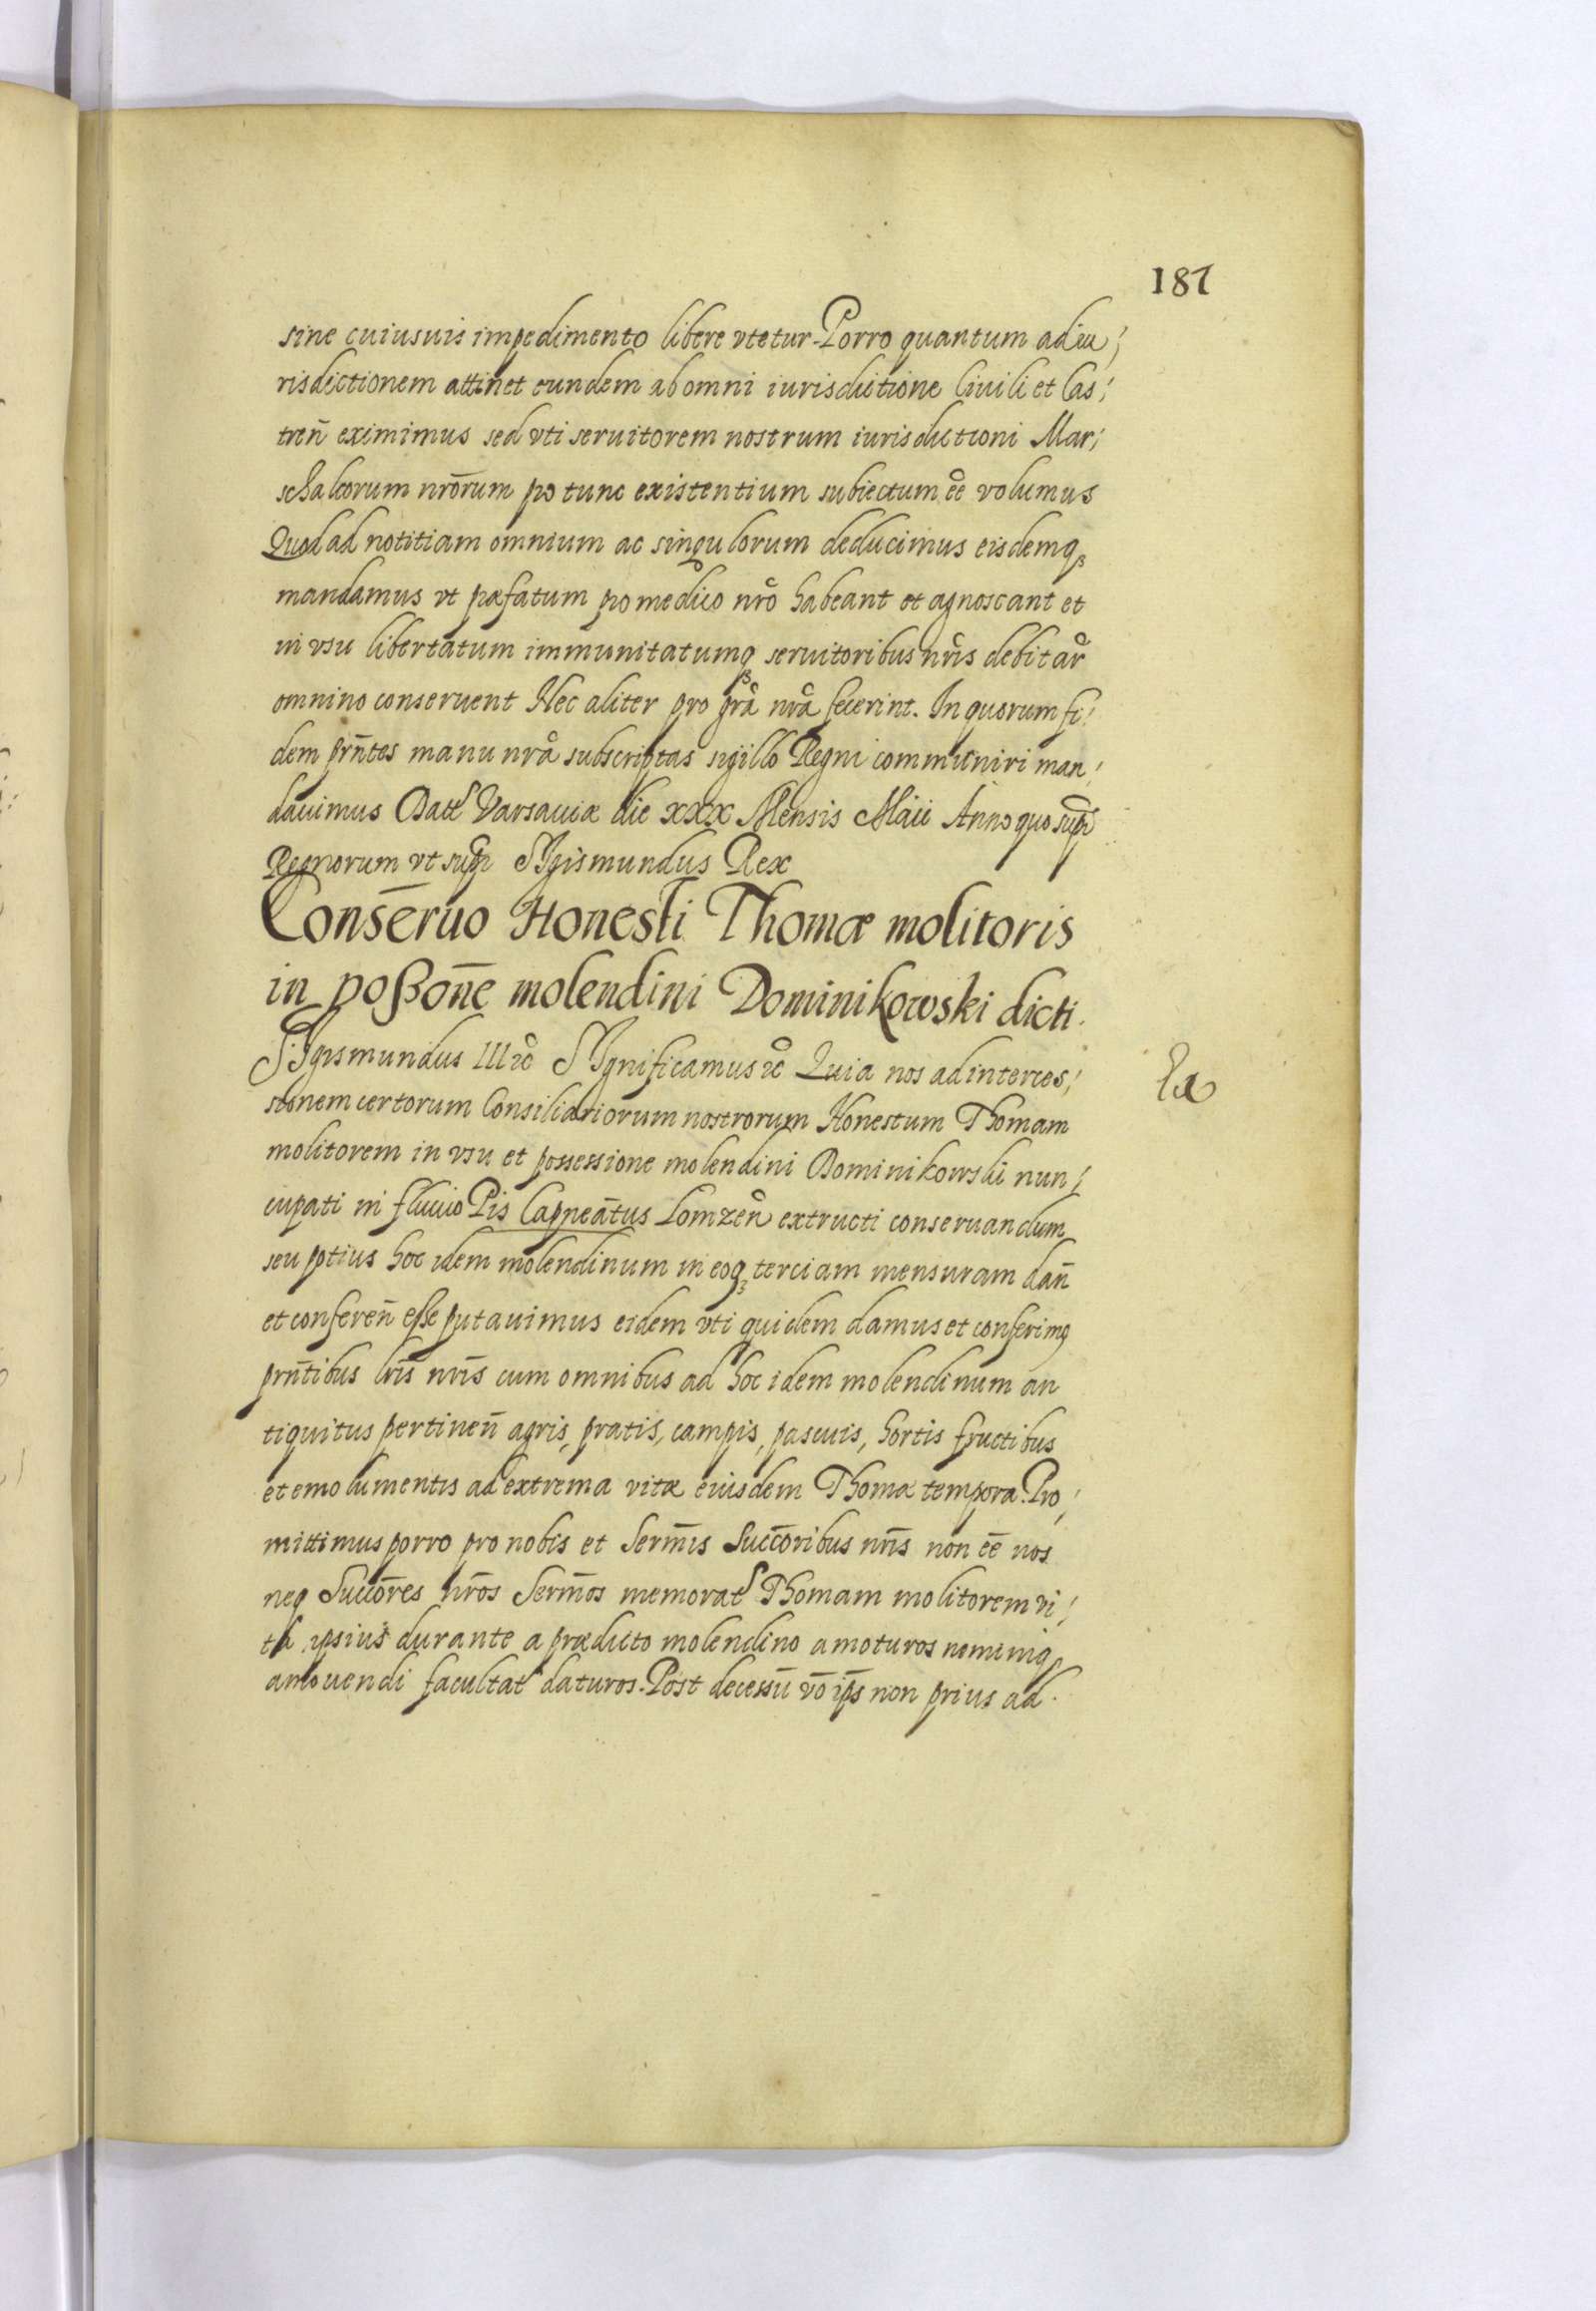 187
sine cuiusuis impedimento libere vtetur. Porro quantum ad iu¦
risdictionem attinet eundem ab omni iurisdictione Ciuili et Cas¦
treñ eximimus sed vti seruitorem nostrum iurisdictioni Mar¦
schalcorum nrōrum po tunc existentium subiectum ee volumus
Quod ad notitiam omnium ac singulorum deducimus eisdemq₃
mandamus vt pæfatum po medico nrō habeant et agnoscant et
in vsu libertatum immunitatumq₃ seruitoribus nris debitar
omnino conseruent Nec aliter pro gra nra fecerint. In quorum fi¦
dem prñtes manu nra subscriptas sigillo Regni communiri man¦
dauimus Datt Varsauiæ die xxx Mensis Maii Anno quo supr
Regnorum vt supr Sigismundus Rex
Conseruo Honesti Thomæ molitoris
in poßone molendini Dominikowski dicti.
Sigismundus III ꝛc Significamus ꝛc Quia nos ad interces¦
sionem certorum Consiliariorum nostrorum Honestum Thomam
molitorem in vsu et possessione molendini Dominikowski nun¦
cupati in fluuio Pis Capneātus Lomzeñ extructi conseruandum
seu potius hoc idem molendinum in eoq₃ terciam mensuram dañ
et confereñ esse putauimus eidem vti quidem damus et conferimq
prñtibus lris nris cum omnibus ad hoc idem molendinum an
tiquitus pertineñ agris, pratis, campis, pascuis, hortis fructibus
et emolumentis ad extrema vitæ eiusdem Thomæ tempora. Pro¦
mittimus porro pro nobis et Sermis Succoribus nris non ēē nos
neq Succores nros Sermos memorat Thomam molitorem vi¦
ta ipsius durante a prædicto molendino amoturos neminiq
amouendi facultat daturos. Post decessū vō ips non prius ad.